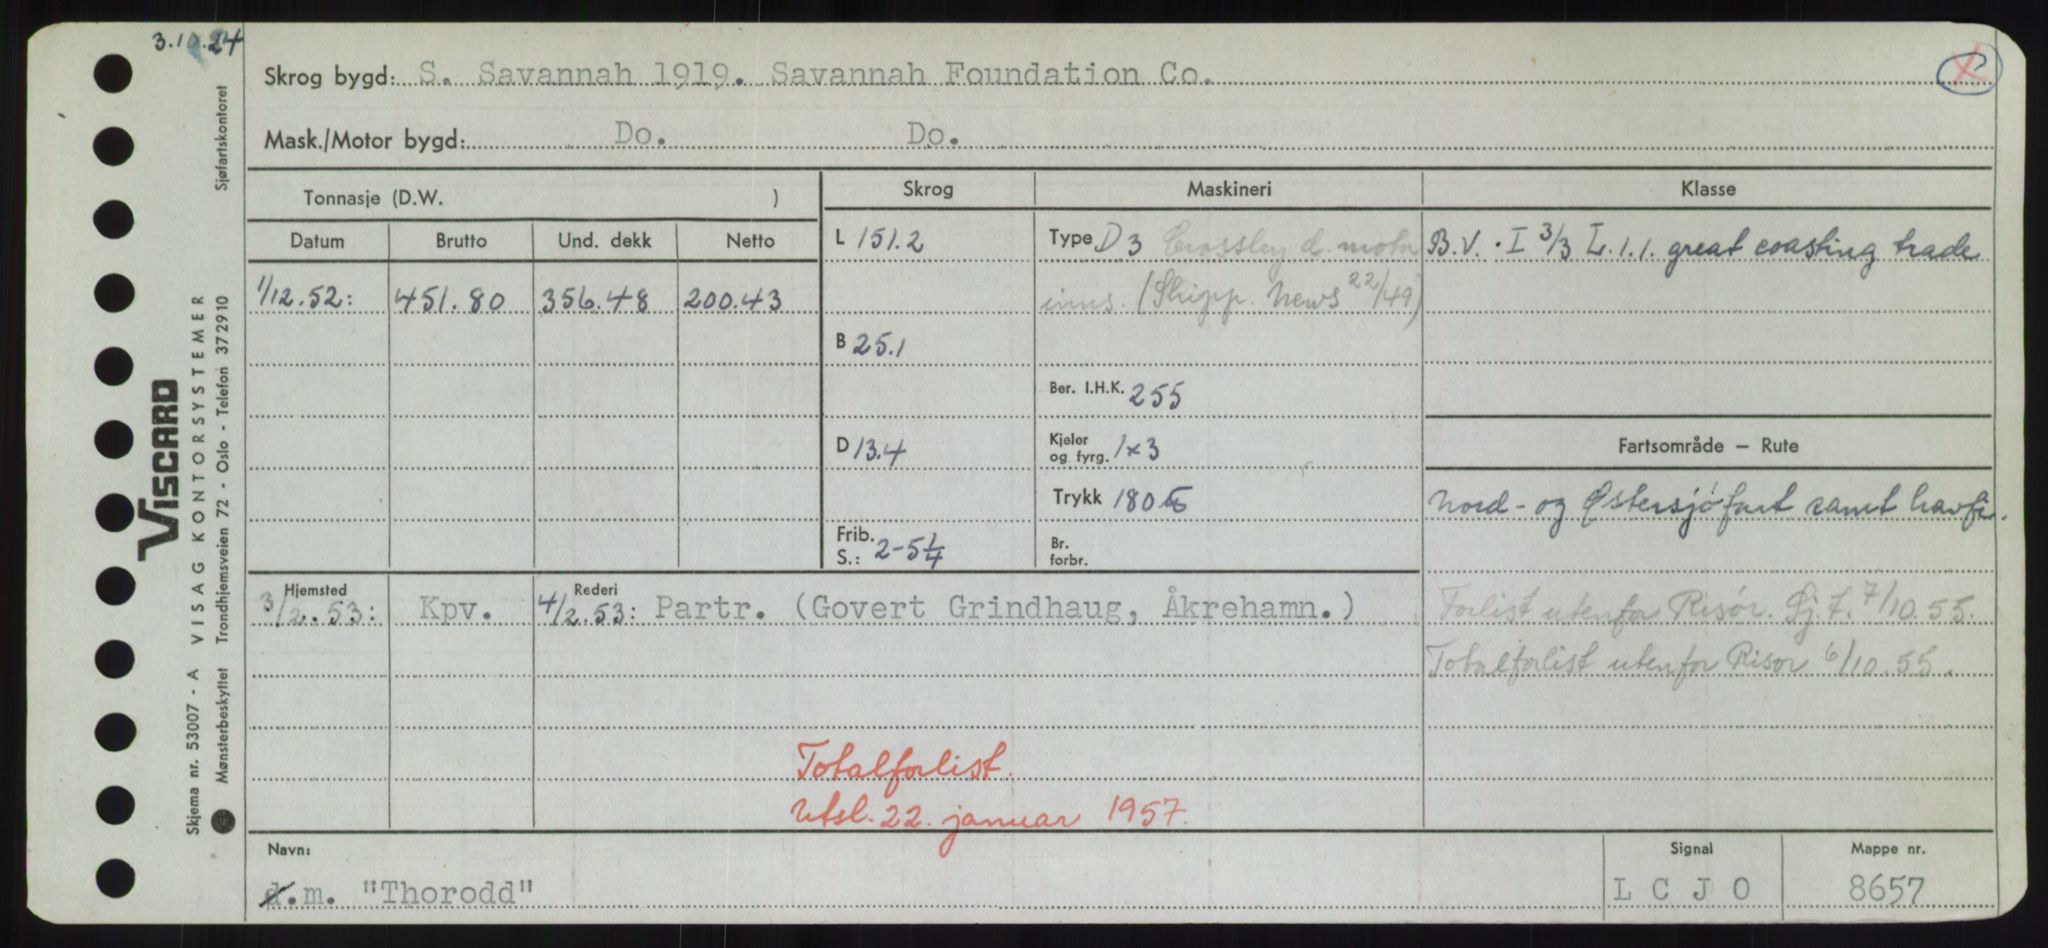 3.10.24
Skrog bygd: S. Savannah 1919. Savannah Foundation Co.
Mask./Motor bygd: Do. Do.
Tonnasje (D.W. )
Skrog
Maskineri
Klasse
Datum Brutto Und. dekk Netto
L 151.2
Type D 3 Crossley d. motor
B.V. I 3/3 L.1.1. great coasting trade
1/12.52: 451.80 356.48 200.43
inns. (Shipp. News 22/49)
B 25.1
Ber. I.H.K. 255
D 13.4
Kjeler og fyrg. 1x3
Fartsområde — Rute
Trykk 180
Nord- og Østersjøfart samt havfi.
Frib. S.: 2-5 1/4
Br. forbr.
Hjemsted
Rederi
3/2.53: Kpv. 4/2.53: Partr. (Govert Grindhaug, Åkrehamn.)
Forlist utenfor Risør. Sj.t. 7/10.55.
Totalforlist utenfor Risør 6/10.55.
Totalforlist.
Utsl. 22. januar 1957.
Navn:
Signal
Mappe nr.
d.m. "Thorodd"
L C J O
8657
VISCARD
Skjema nr. 53007 - A VISAG KONTORSYSTEMER
Mønsterbeskyttet Trondhjemsveien 72 - Oslo - Telefon 372910 Sjøfartskontoret